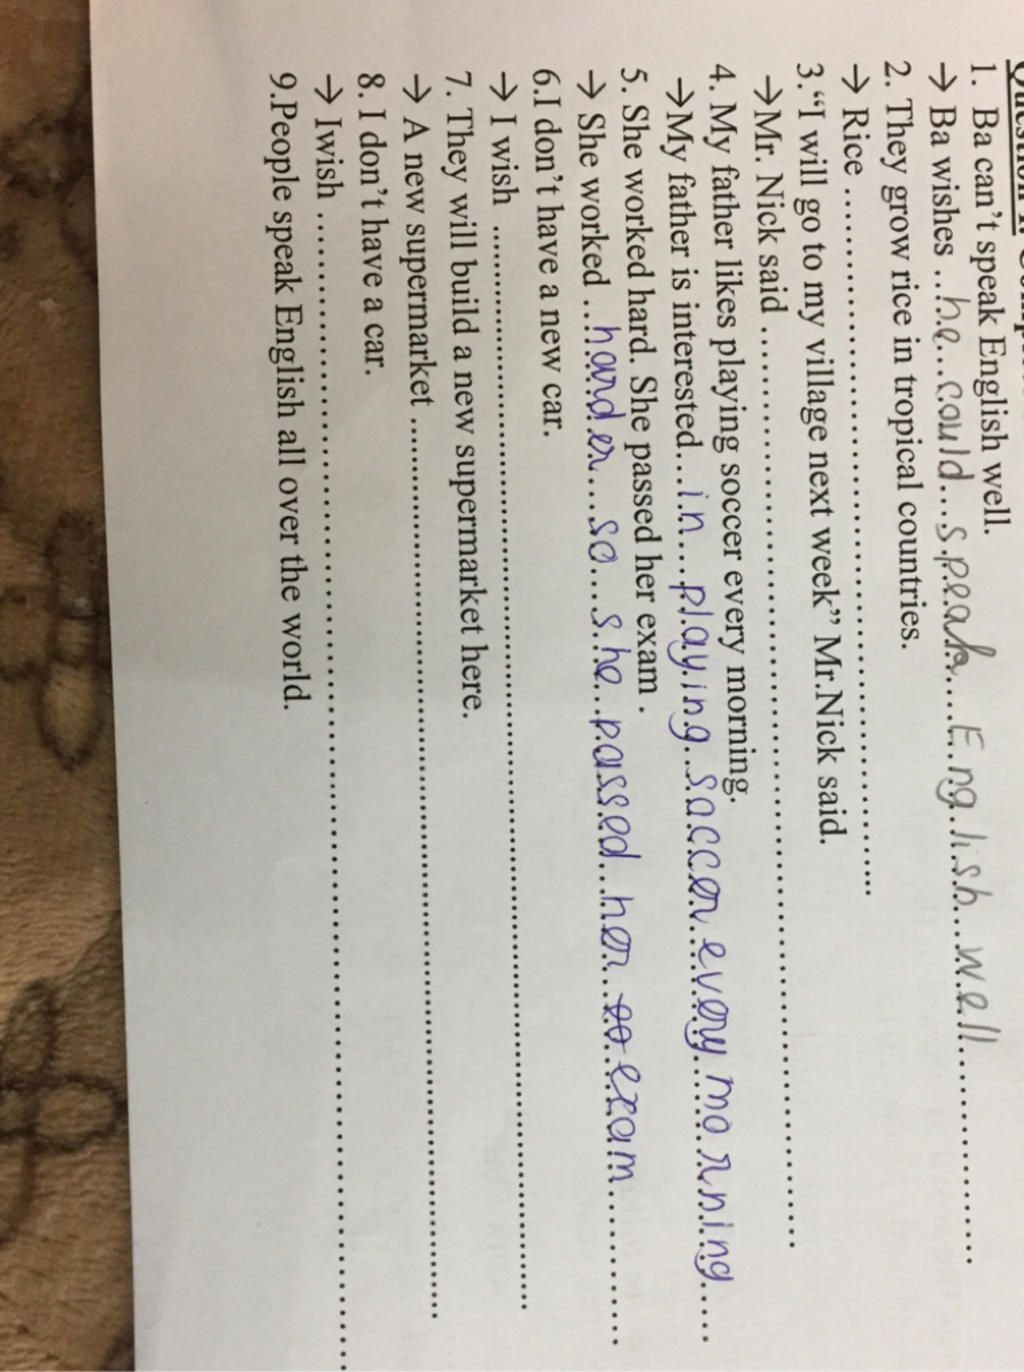 1. Ba can't speak English well.
→ Ba wishes ..he...could...speak....English...well...............
2. They grow rice in tropical countries.
→ Rice ................................................................
3.“I will go to my village next week” Mr.Nick said.
→Mr. Nick said ................................................................
4. My father likes playing soccer every morning.
→My father is interested...in...playing..soccer every morning....
5. She worked hard. She passed her exam .
→ She worked ..harder...so...she...passed..her..exam..........
6.I don't have a new car.
→ I wish ................................................................
7. They will build a new supermarket here.
→ A new supermarket ................................................................
8. I don't have a car.
→ Iwish ................................................................
9.People speak English all over the world.